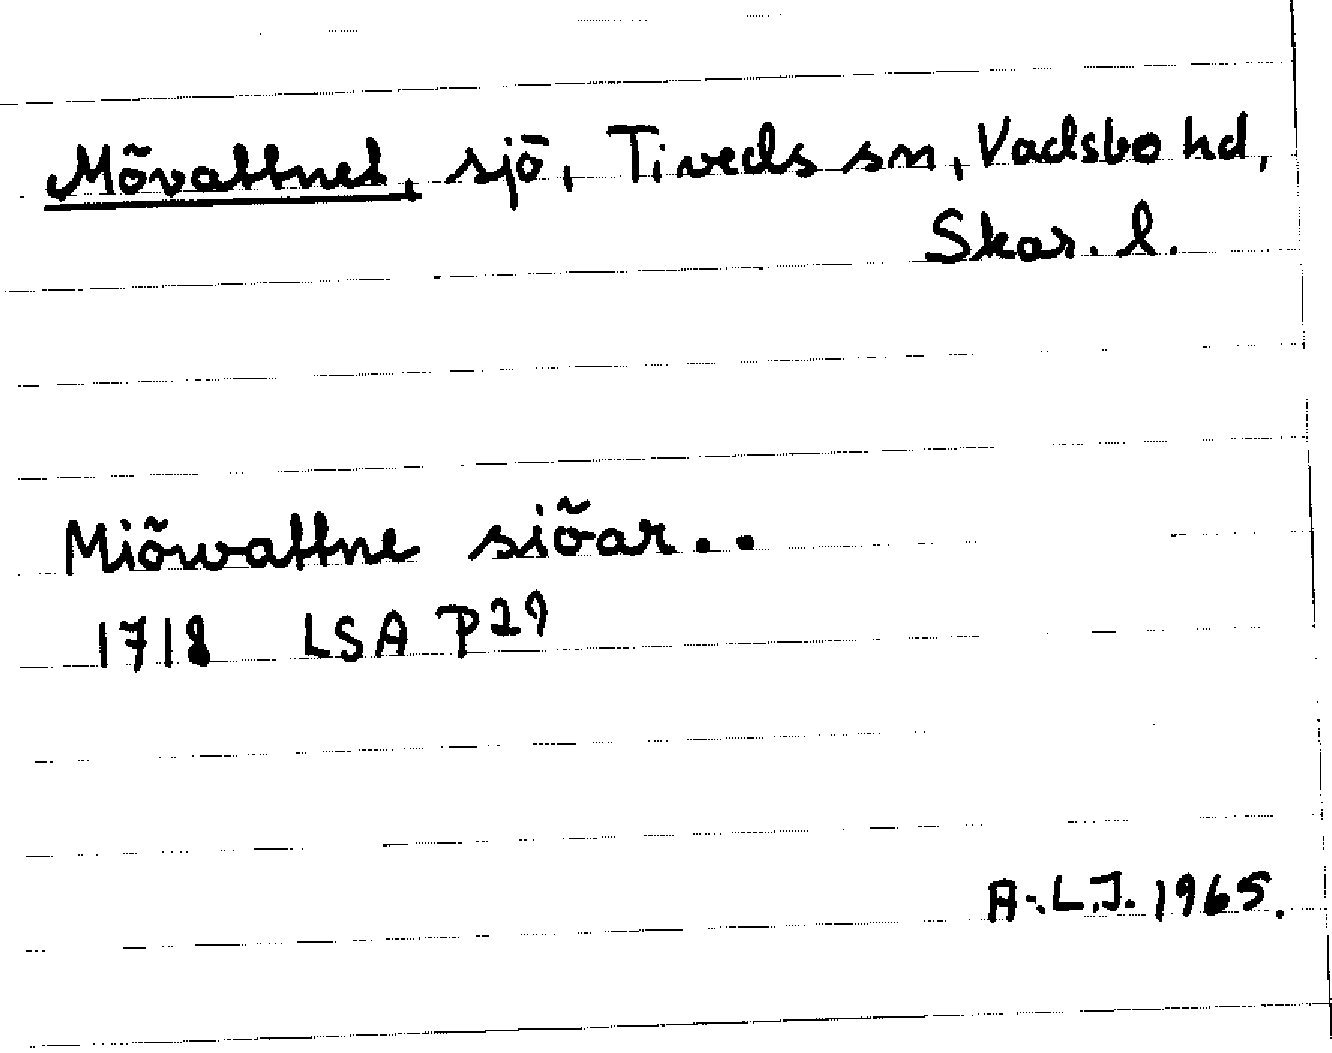 Mövattnet, sjö, Tiveds sn, Vadsbo hd,
Skar. l.
Miöwattne siöar..
1718 LSA P29
A.L.J. 1965.